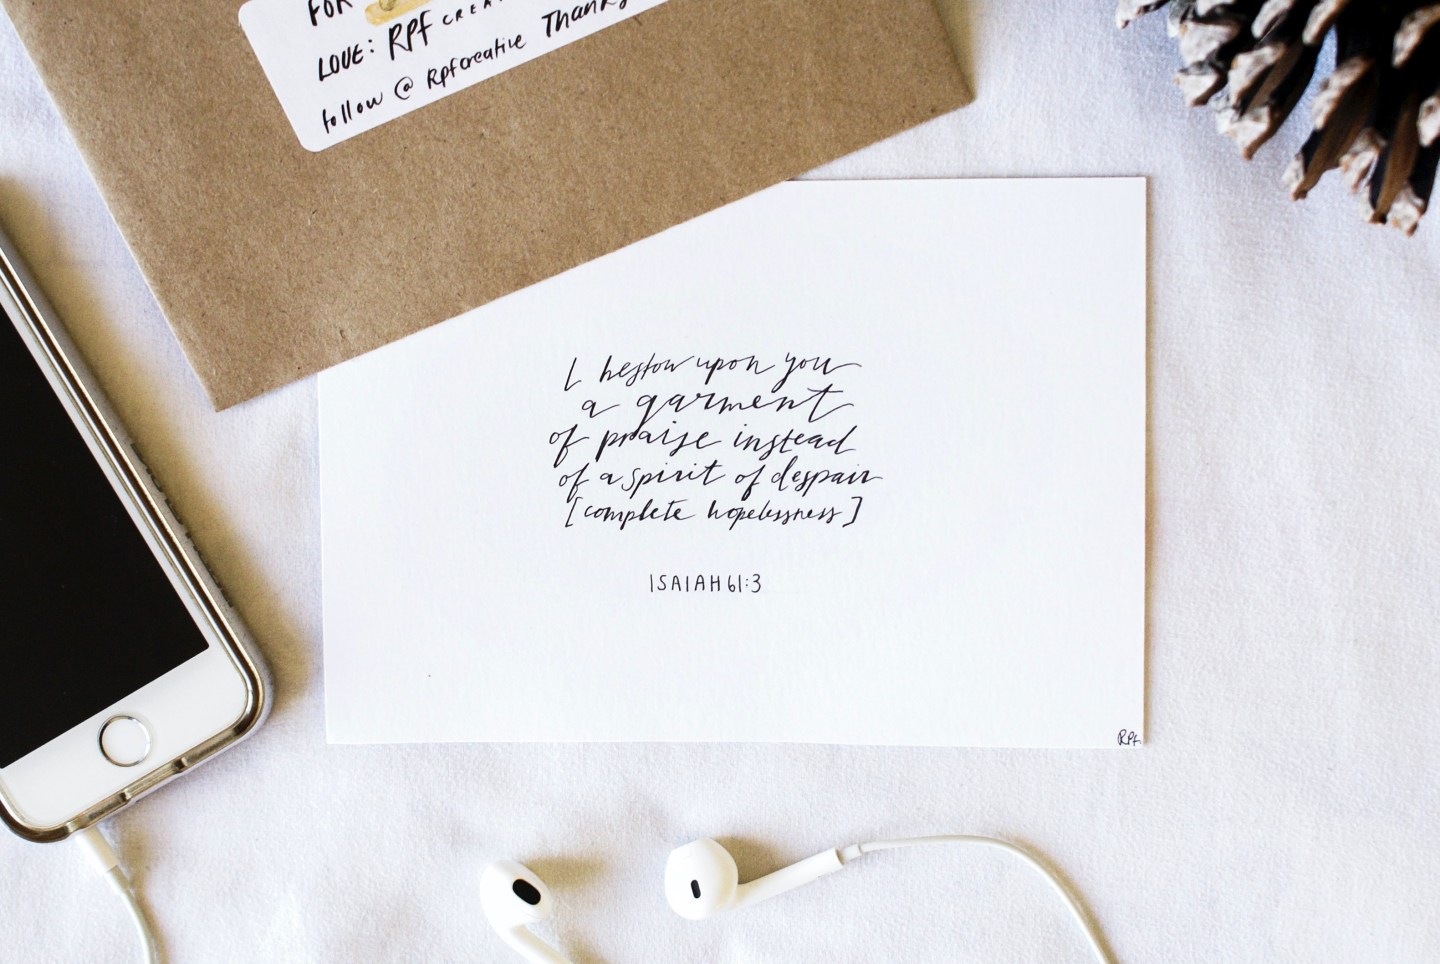 FOR
LOVE: RPF CREA
follow @ Rpfcreative Thank
I bestow upon you
a garment
of praise instead
of a spirit of despair
[complete hopelessness]
ISAIAH 61:3
RPF.